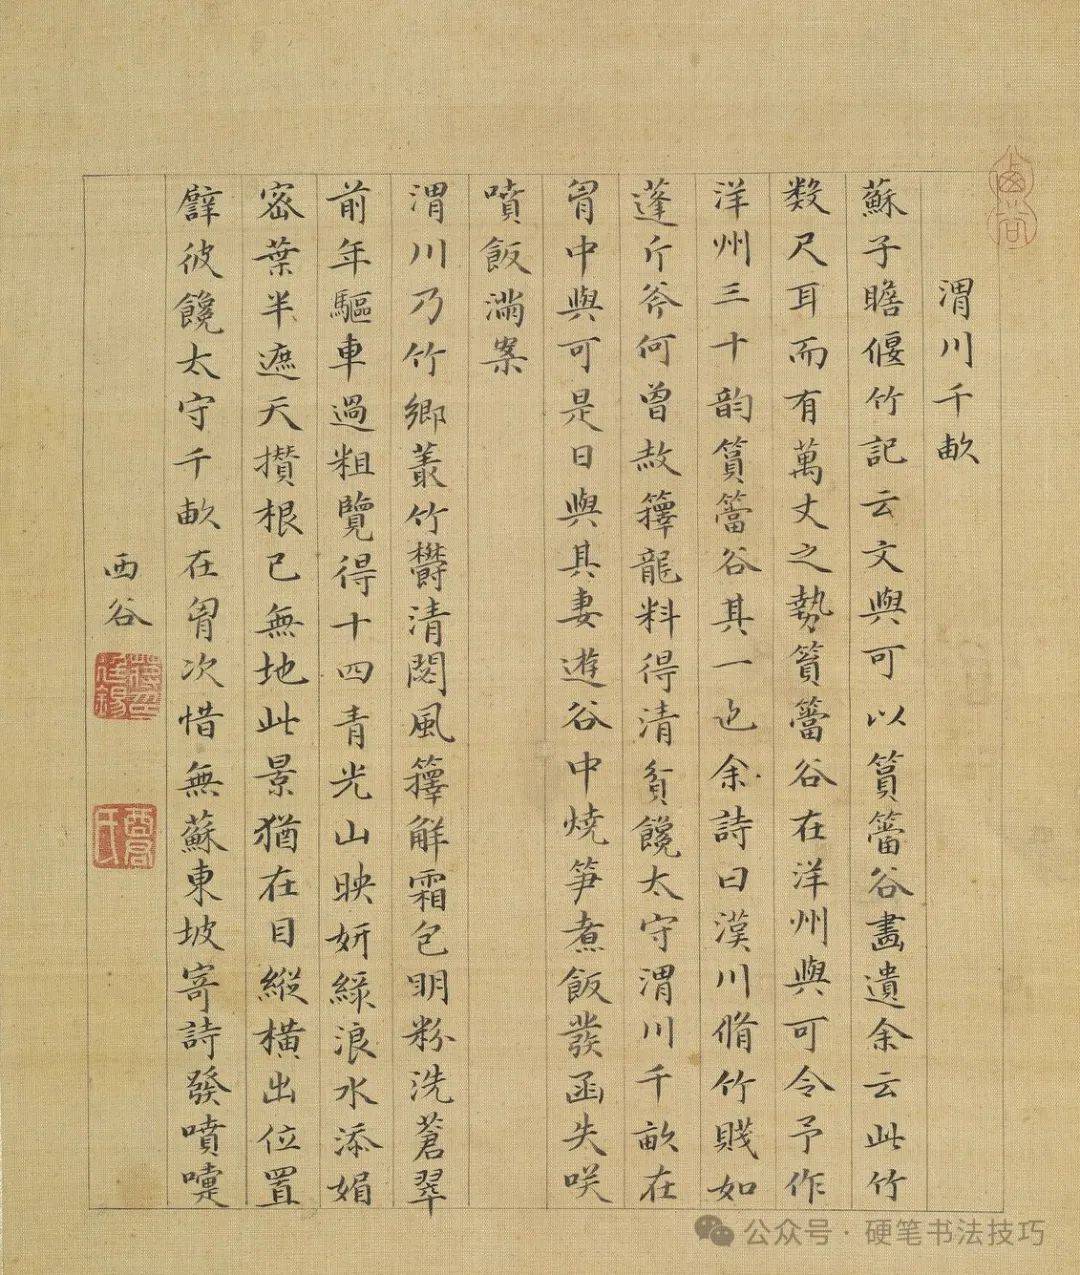 渭川千畝
蘇子瞻偃竹記云文與可以篔簹谷畫遺余云此竹
数尺耳而有萬丈之勢篔簹谷在洋州與可令予作
洋州三十韵篔簹谷其一也余詩曰漢川脩竹賤如
蓬斤斧何曾赦籜龍料得清貧饞太守渭川千畝在
胷中與可是日與其妻遊谷中燒笋煮飯發函失笑
噴飯滿案
渭川乃竹鄉叢竹欝清閟風籜解霜包明粉洗蒼翠
前年驅車過粗覽得十四青光山映妍綠浪水添媚
密葉半遮天攢根已無地此景猶在目縱橫出位置
譬彼饞太守千畝在胷次惜無蘇東坡寄詩發噴嚏
西谷
公众号·硬笔书法技巧